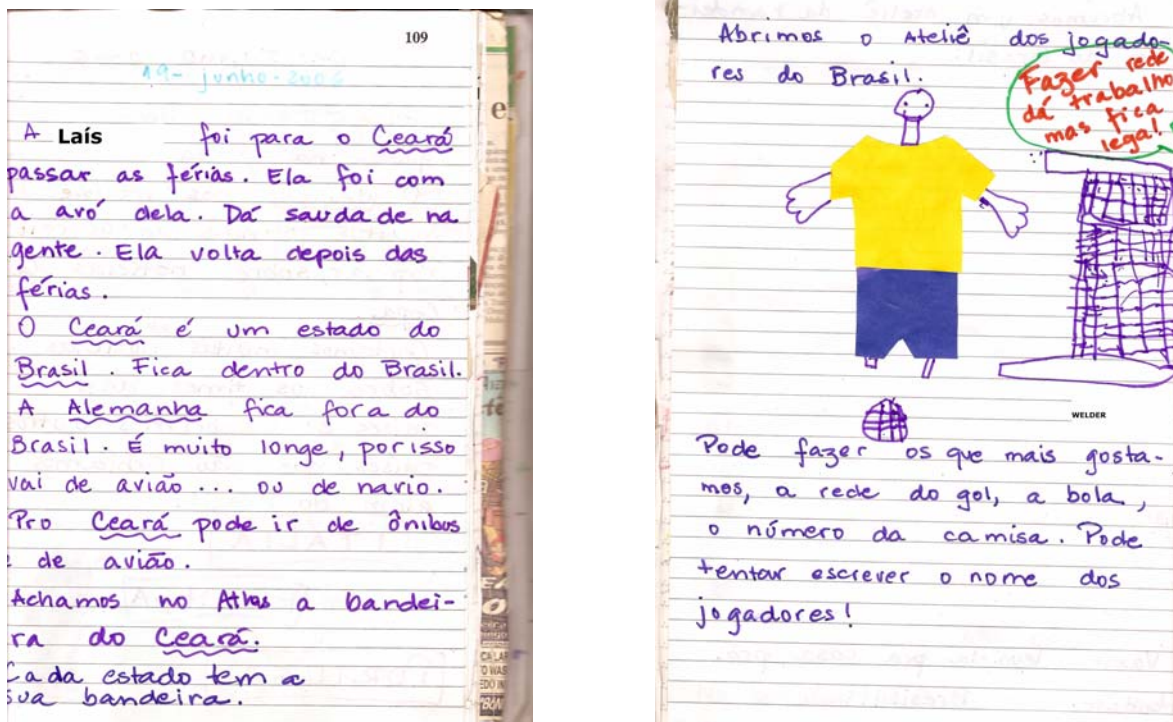 109
19-junho-2006
A Laís foi para o Ceará
passar as férias. Ela foi com
a avó dela. Dá saudade na
gente. Ela volta depois das
férias.
O Ceará é um estado do
Brasil. Fica dentro do Brasil.
A Alemanha fica fora do
Brasil. É muito longe, por isso
vai de avião... ou de navio.
Pro Ceará pode ir de ônibus
de avião.
Achamos no Atlas a bandei-
ra do Ceará.
Cada estado tem a
sua bandeira.
Abrimos o Ateliê dos jogado-
res do Brasil.
Fazer rede
dá trabalho
mas fica
legal!
WELDER
Pode fazer os que mais gosta-
mos, a rede do gol, a bola,
o número da camisa. Pode
tentar escrever o nome dos
jogadores!